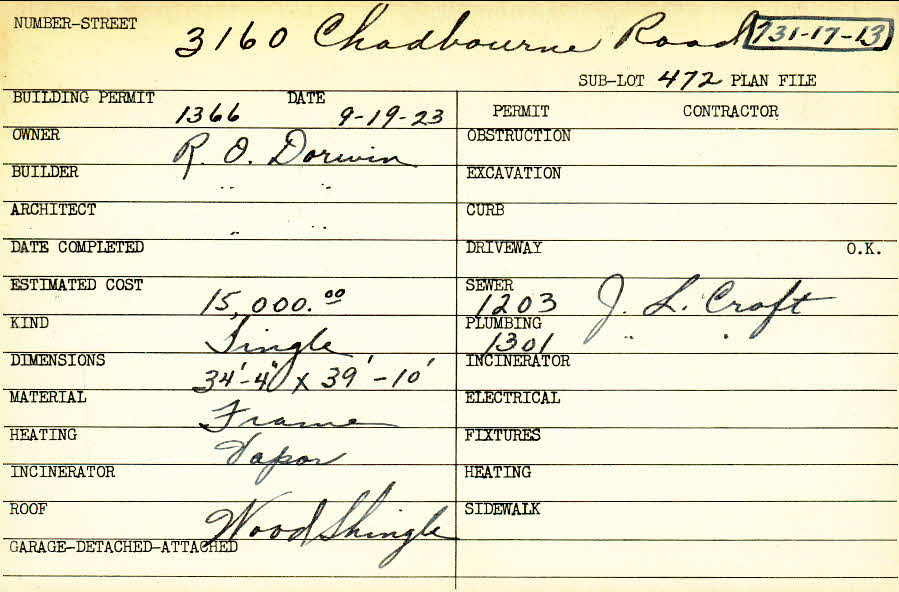 NUMBER-STREET 3160 Chadbourne Road 731-17-13
SUB-LOT 472 PLAN FILE
BUILDING PERMIT 1366 DATE 9-19-23
PERMIT CONTRACTOR
OWNER R. O. Dorwin
OBSTRUCTION
BUILDER " "
EXCAVATION
ARCHITECT " "
CURB
DATE COMPLETED
DRIVEWAY O.K.
ESTIMATED COST 15,000.00
SEWER 1203 J. L. Croft
KIND Single
PLUMBING 1301 " "
DIMENSIONS 34'-4" x 39'-10'
INCINERATOR
MATERIAL Frame
ELECTRICAL
HEATING Vapor
FIXTURES
INCINERATOR
HEATING
ROOF Wood Shingle
SIDEWALK
GARAGE-DETACHED-ATTACHED